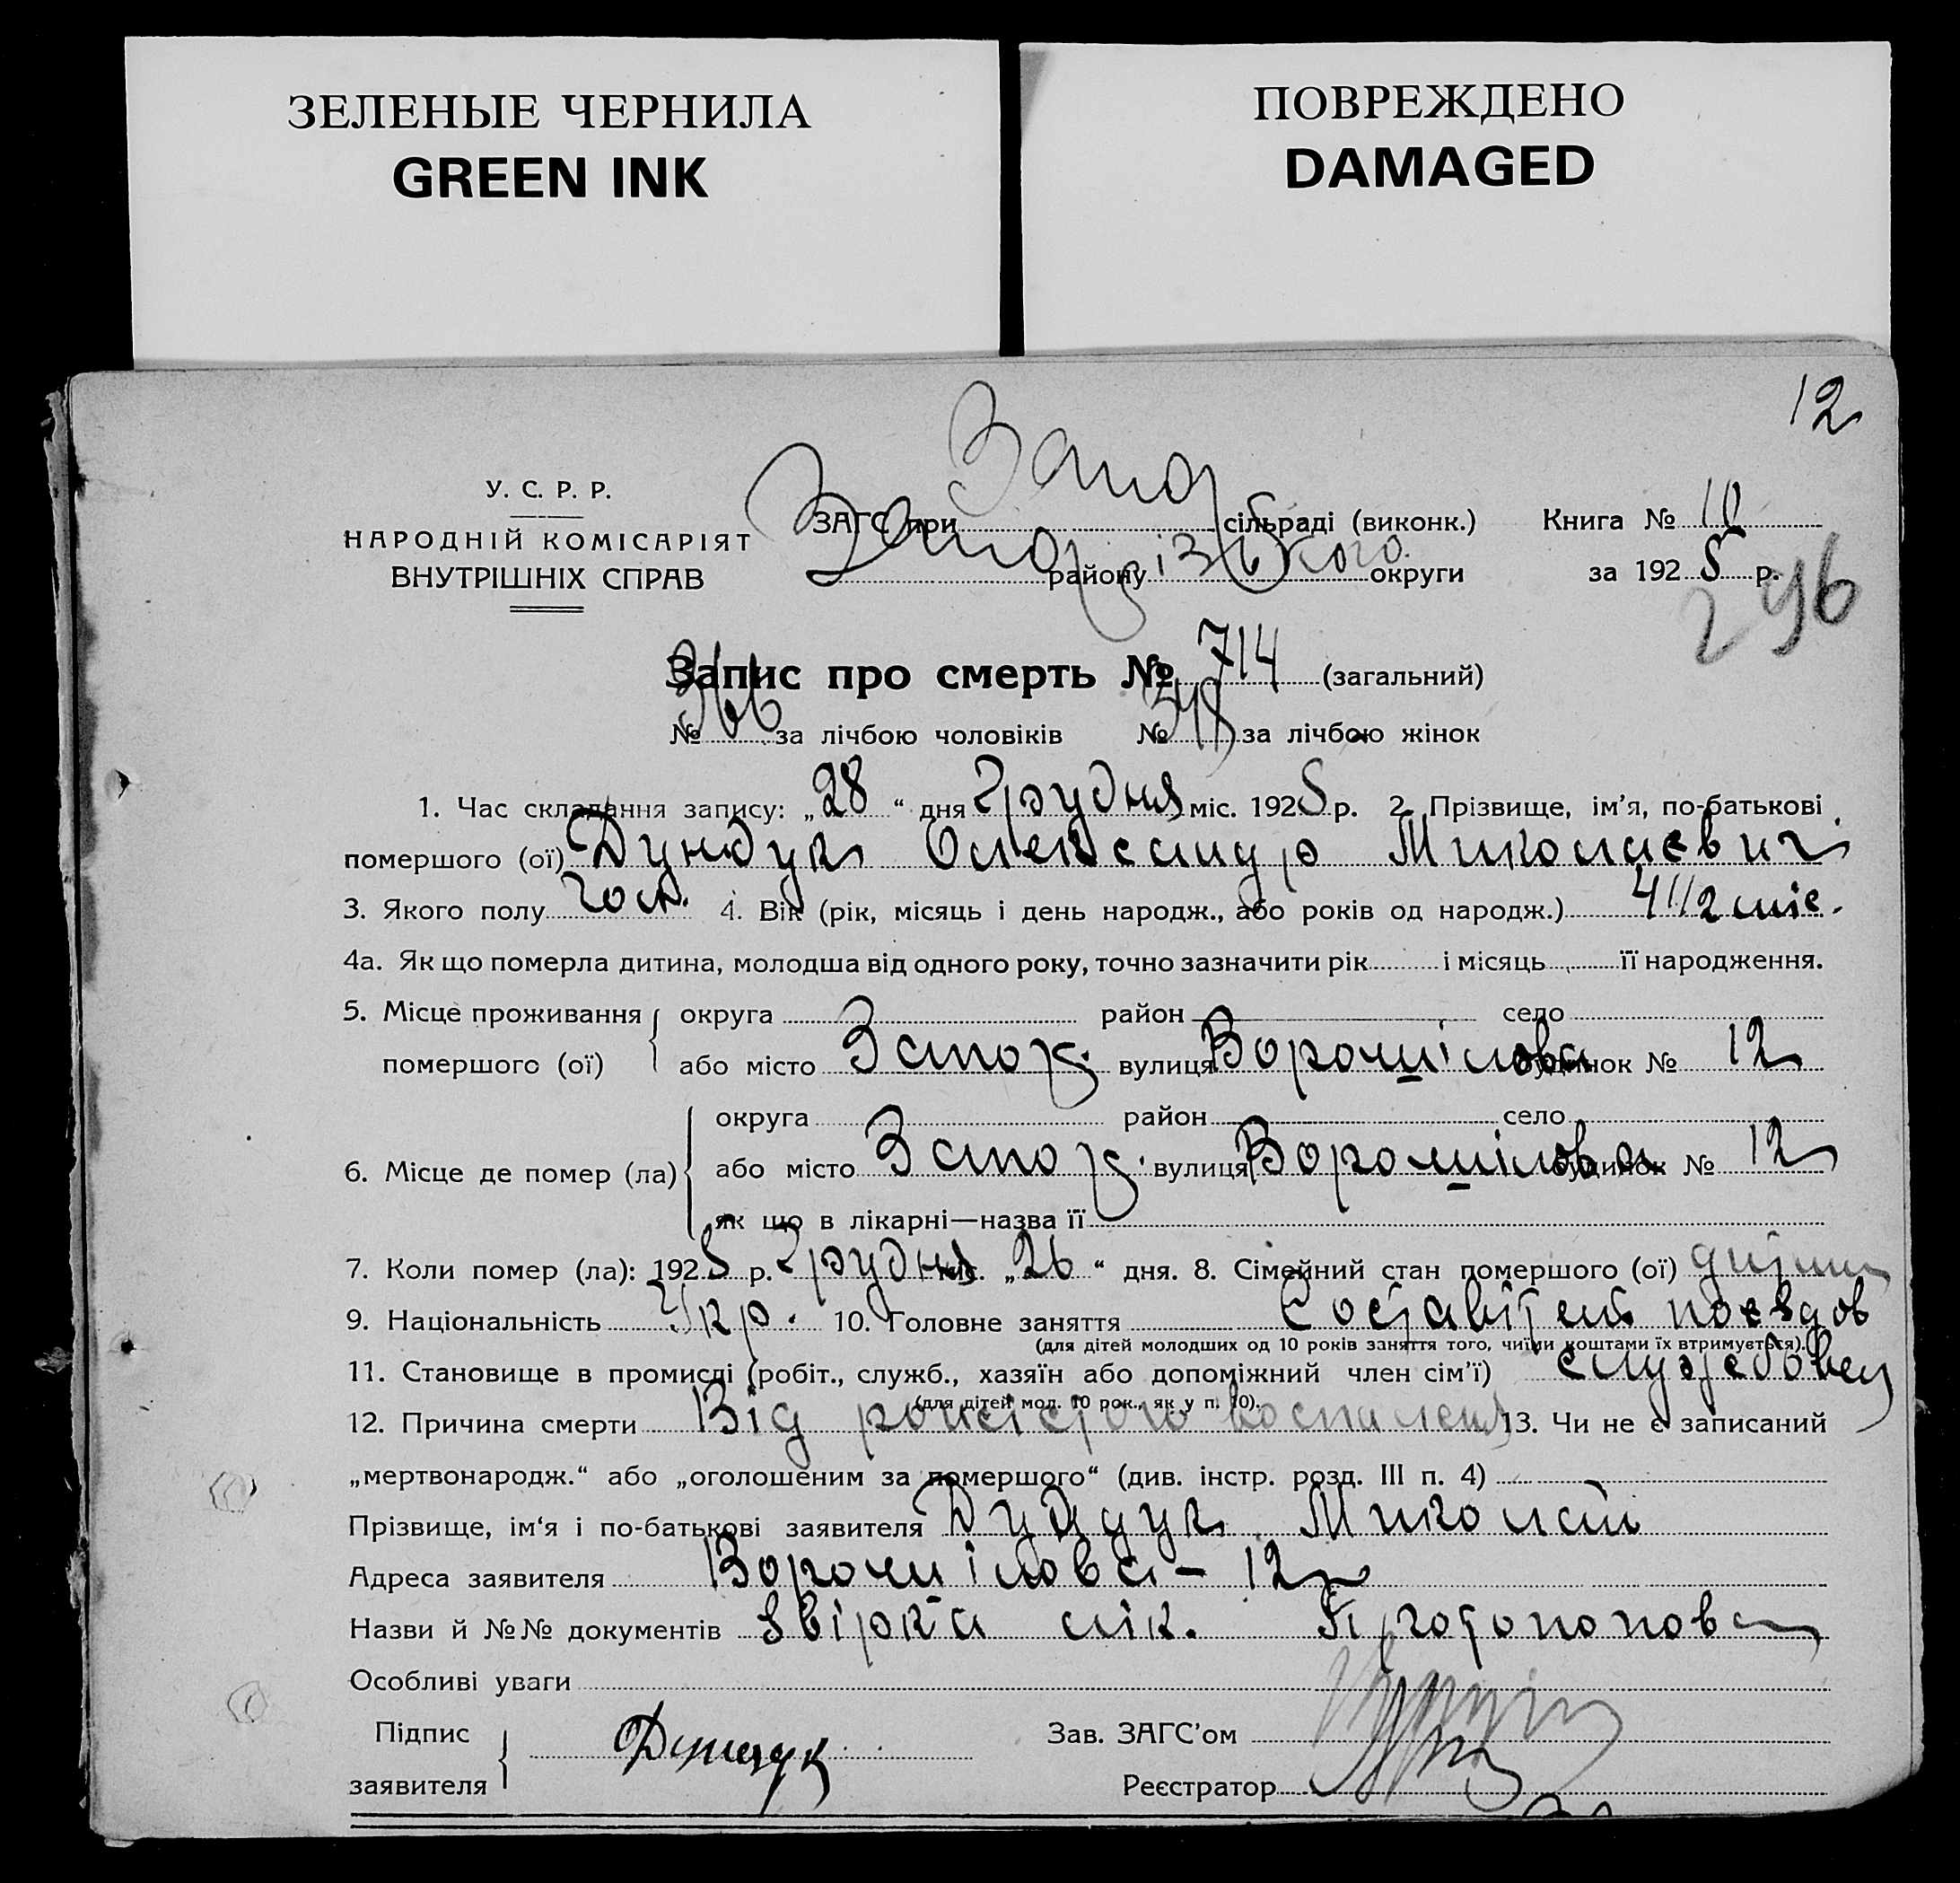 ЗЕЛЕНЫЕ ЧЕРНИЛА
GREEN INK
ПОВРЕЖДЕНО
DAMAGED
12
У. С. Р. Р.
НАРОДНІЙ КОМІСАРІЯТ
ВНУТРІШНІХ СПРАВ
ЗАГС при Запор сільраді (виконк.)
Запорізького району округи
Книга № 10
за 1925 р.
296
Запис про смерть № 714 (загальний)
№ 366 за лічбою чоловіків № 348 за лічбою жінок
1. Час складання запису: „28“ дня Грудня міс. 1925 р. 2. Прізвище, ім’я, по-батькові
помершого (ої) Дундук Олександр Миколаєвич
3. Якого полу чол. 4. Вік (рік, місяць і день народж., або років од народж.) 4 1/2 міс.
4а. Як що померла дитина, молодша від одного року, точно зазначити рік і місяць її народження.
5. Місце проживання помершого (ої) округа район село
або місто Запор. вулиця Ворошілова будинок № 12
6. Місце де помер (ла) округа район село
або місто Запор. вулиця Ворошілова будинок № 12
як що в лікарні—назва її
7. Коли помер (ла): 1925 р. Грудня міс. „26“ дня. 8. Сімейний стан помершого (ої)
9. Національність Укр. 10. Головне заняття Составітель поєздов
(для дітей молодших од 10 років заняття того, чиїми коштами їх втримується).
11. Становище в промислі (робіт., служб., хазяїн або допоміжний член сім’ї) служебовец
(для дітей мол. 10 рок., як у п. 10).
12. Причина смерти Від воспаления 13. Чи не є записаний
„мертвонародж.“ або „оголошеним за помершого“ (див. інстр. розд. III п. 4)
Прізвище, ім‘я і по-батькові заявителя Дундук Миколай
Адреса заявителя Ворошілова – 12
Назви й №№ документів звірка лік. Протопопова
Особливі уваги
Підпис заявителя Дундук
Зав. ЗАГС’ом
Реєстратор